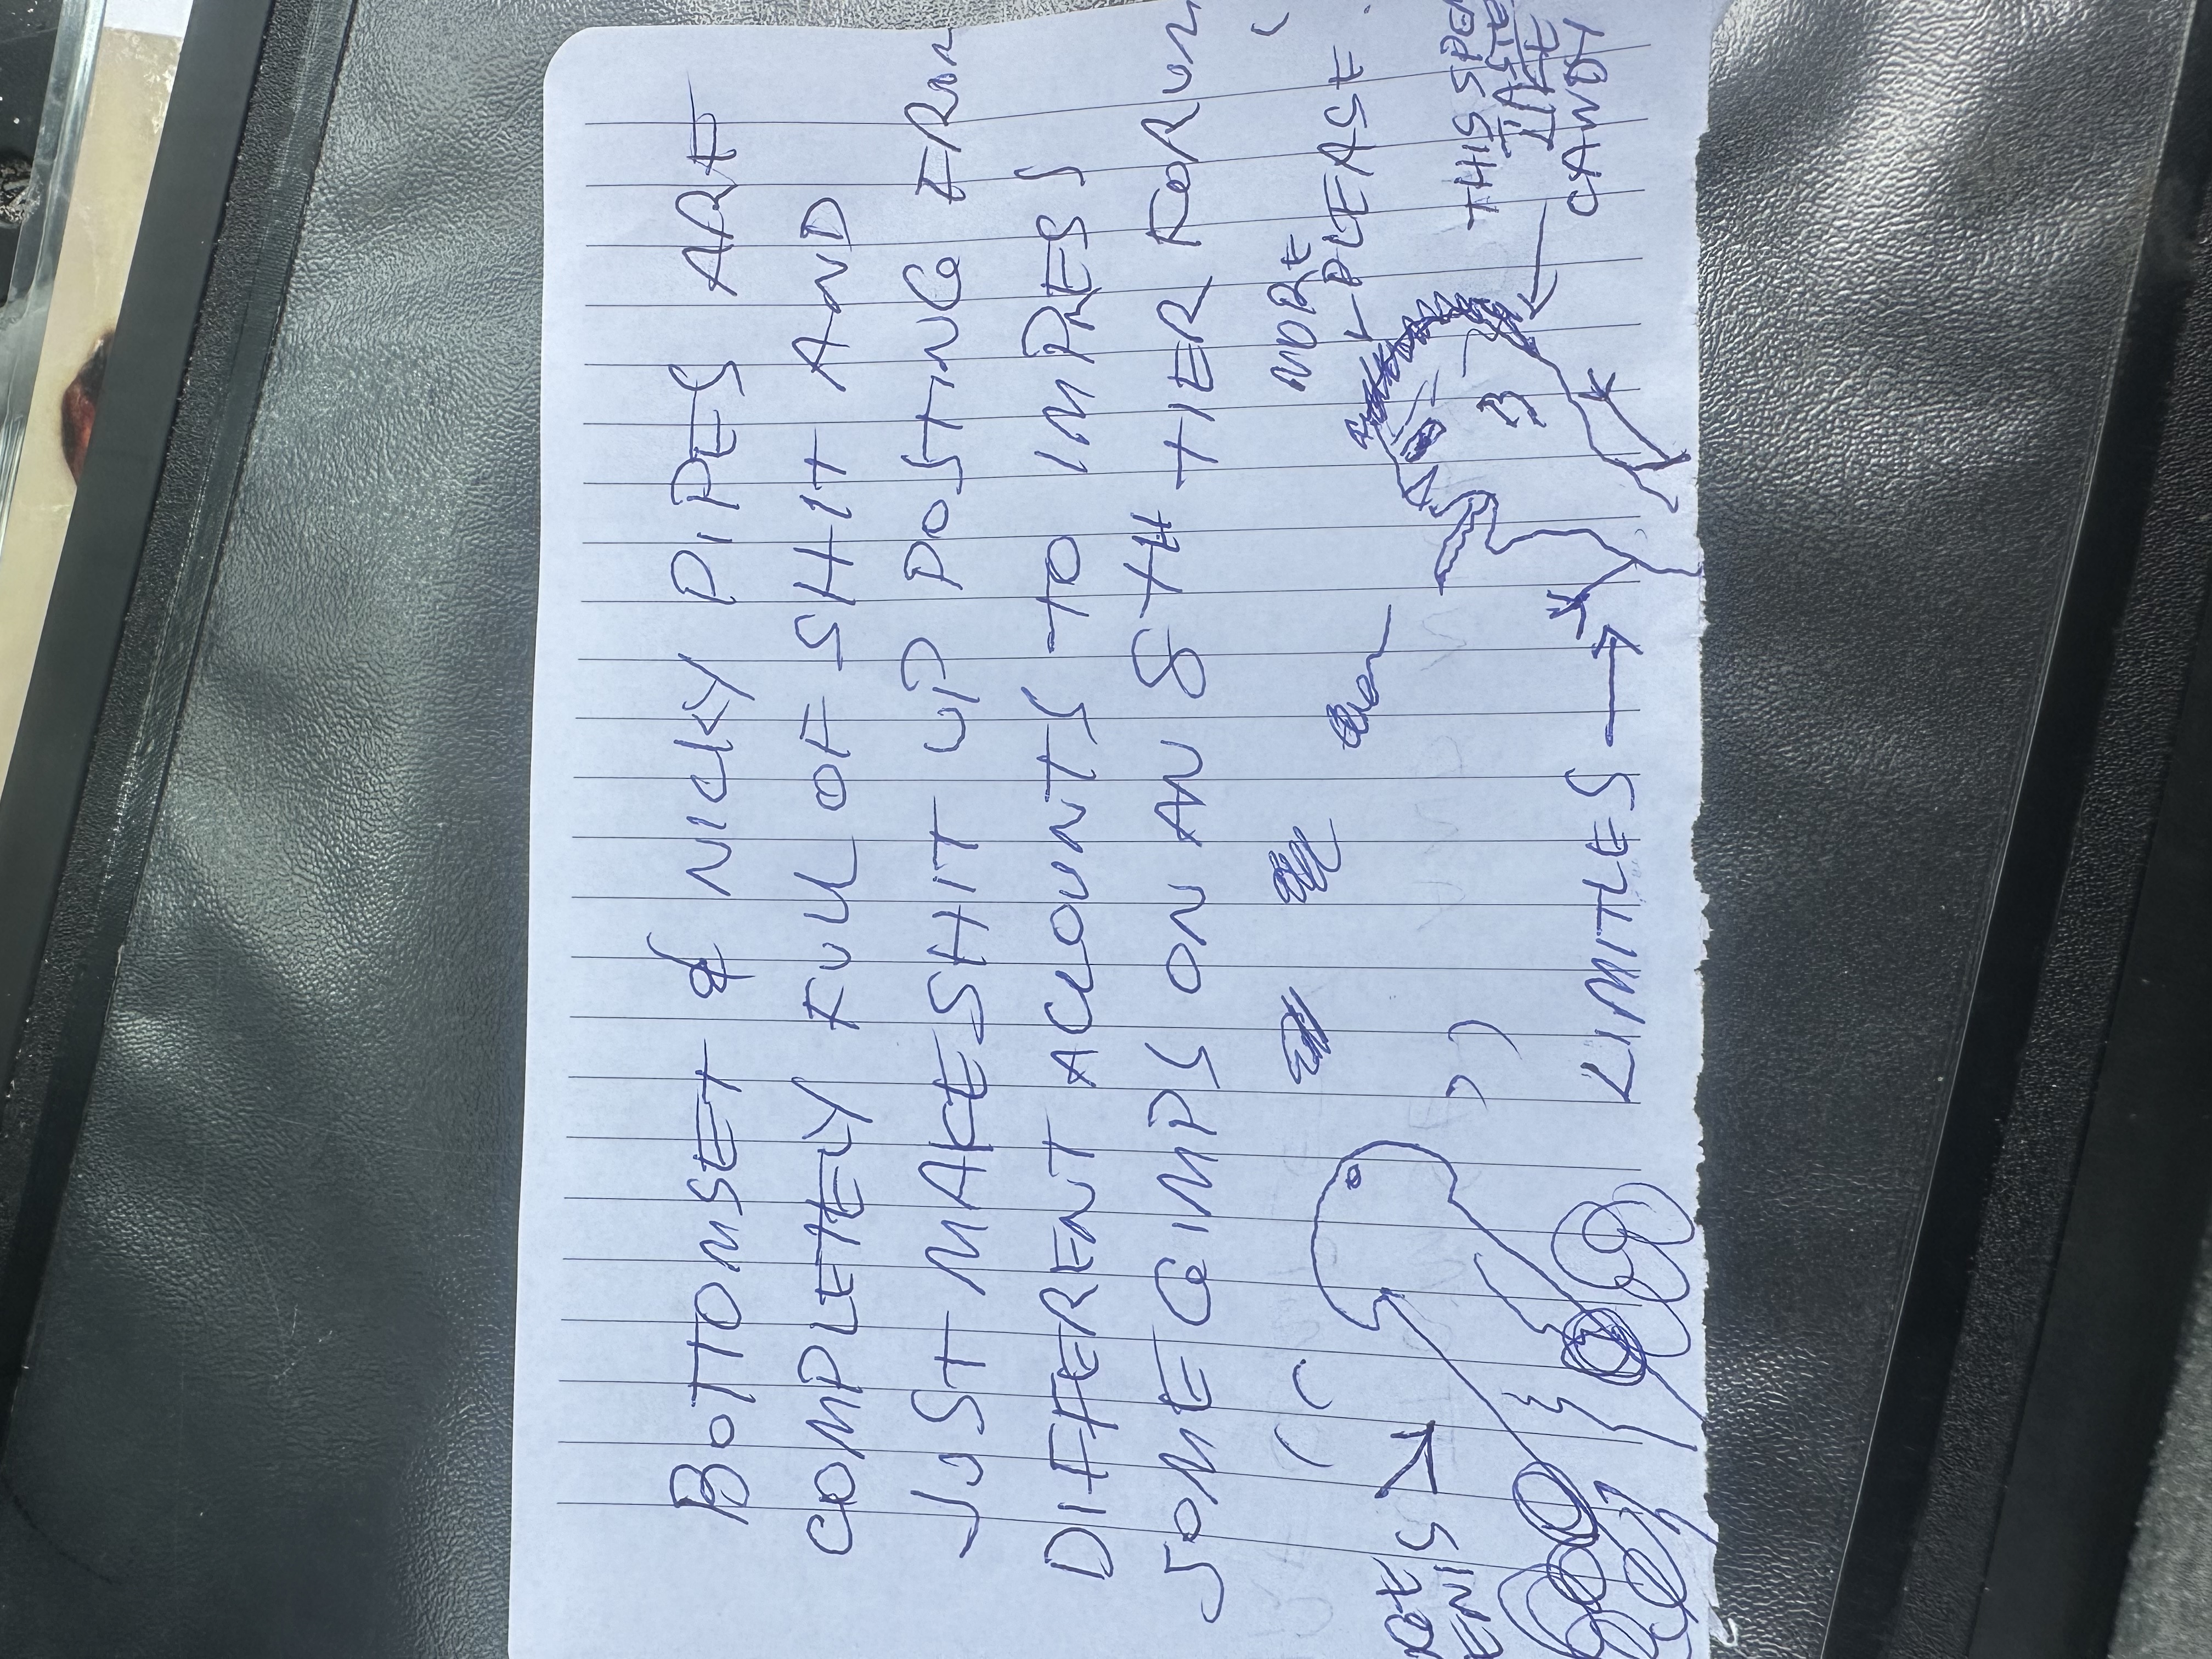 BOTTOMSET & NICKY PIPES ARE
COMPLETELY FULL OF SHIT AND
JUST MAKE SHIT UP POSTING FROM
DIFFERENT ACCOUNTS TO IMPRESS
SOME GIMPS ON AN 8TH TIER FORUM
MORE
PLEASE.
ENIS
THIS SPE
TASTE
LIKE
CANDY
LIMITLES